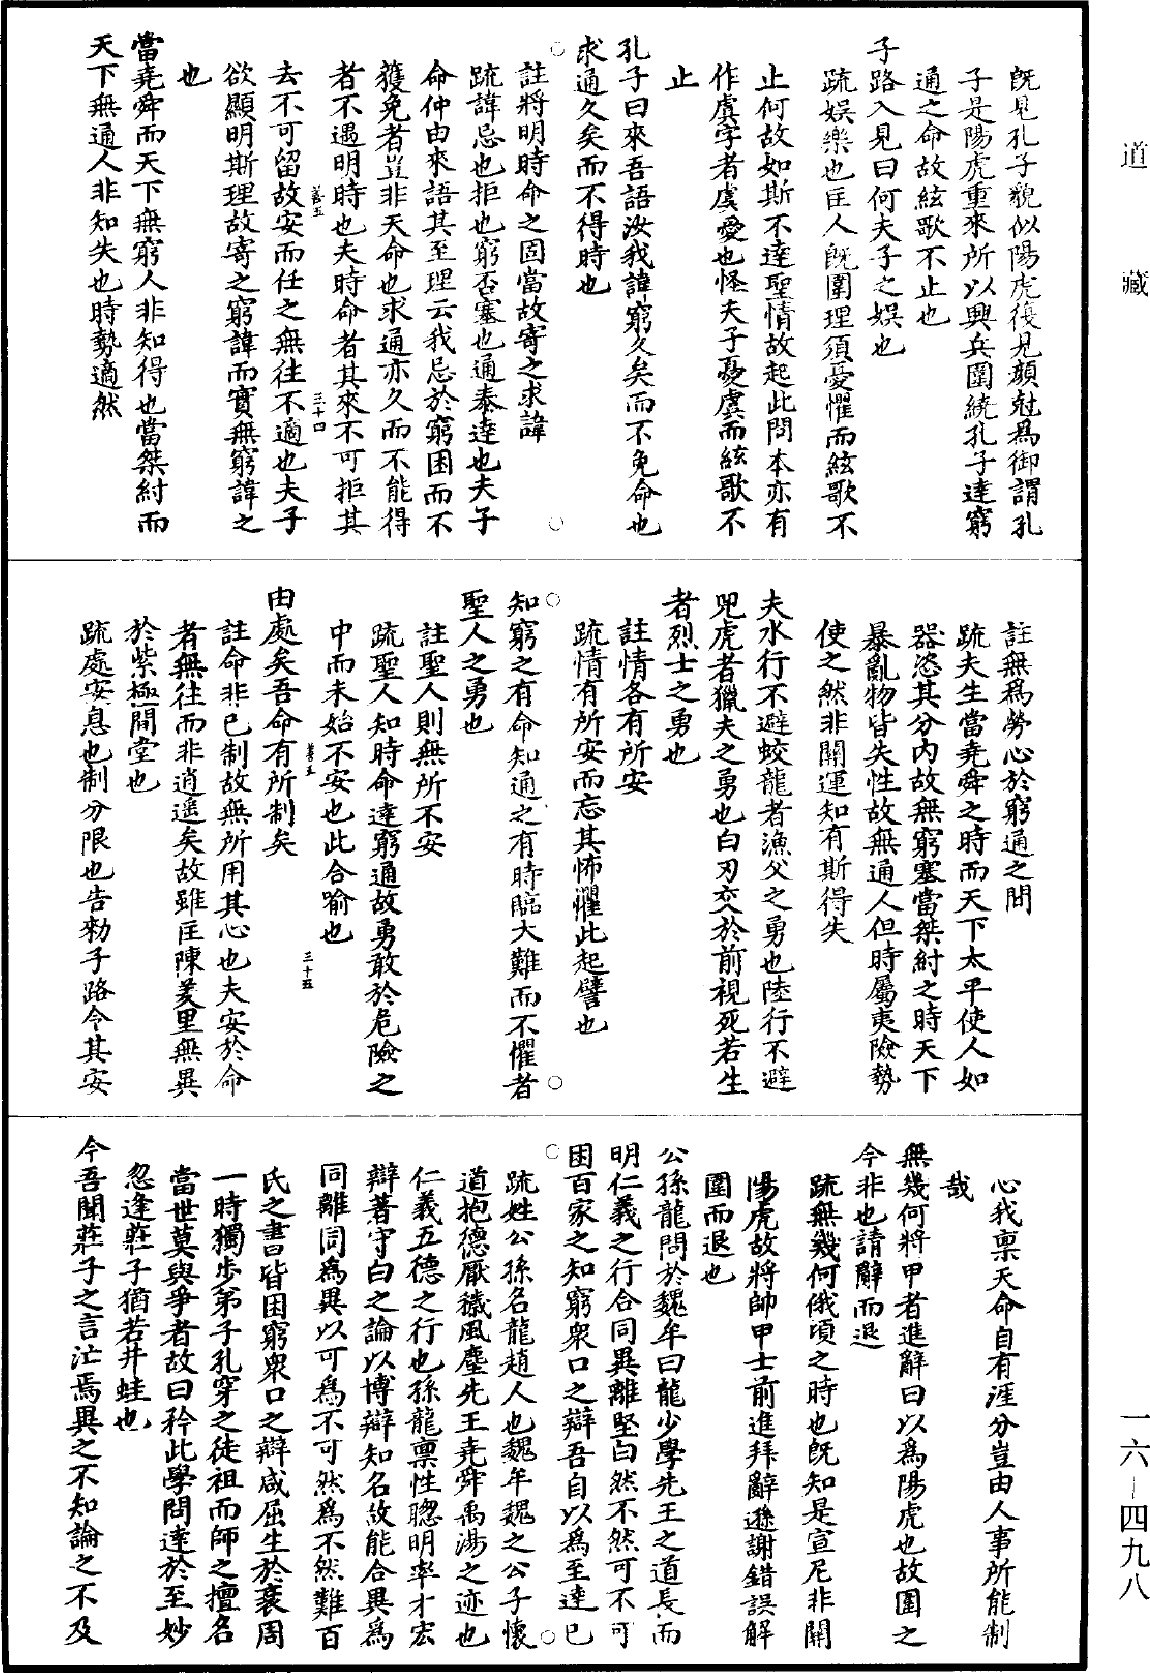 道藏
既見孔子貌似陽虎復見顔尅爲御謂孔
子是陽虎重來所以興兵圍繞孔子達窮
通之命故絃歌不止也
子路入見曰何夫子之娱也
疏娱樂也匡人旣圍理須憂懼而絃歌不
止何故如斯不達聖情故起此問本亦有
作虞字者虞憂也怪夫子憂虞而絃歌不
止
孔子曰來吾語汝我諱窮久矣而不免命也
求通久矣而不得時也
註將明時命之固當故寄之求諱
疏諱忌也拒也窮否塞也通泰達也夫子
命仲由來語其至理云我忌於窮困而不
獲免者豈非天命也求通亦久而不能得
者不遇明時也夫時命者其來不可拒其
善五
三十四
去不可留故安而任之無往不適也夫子
欲顯明斯理故寄之窮諱而實無窮諱之
也
當堯舜而天下無窮人非知得也當桀紂而
天下無通人非知失也時勢適然
註無爲勞心於窮通之間
疏夫生當堯舜之時而天下太平使人如
器恣其分內故無窮塞當桀紂之時天下
暴亂物皆失性故無通人但時屬夷險勢
使之然非關運知有斯得失
夫水行不避蛟龍者漁父之勇也陸行不避
兕虎者獵夫之勇也白刃交於前視死若生
者烈士之勇也
註情各有所安
疏情有所安而忘其怖懼此起譬也
知窮之有命知通之有時臨大難而不懼者
聖人之勇也
註聖人則無所不安
疏聖人知時命達窮通故勇敢於危險之
中而未始不安也此合喻也
善五
三十五
由處矣吾命有所制矣
註命非己制故無所用其心也夫安於命
者無往而非逍遥矣故雖匡陳羑里無異
於紫極閒堂也
疏處安息也制分限也告勑子路令其安
心我禀天命自有涯分豈由人事所能制
哉
無幾何將甲者進辭曰以爲陽虎也故圍之
今非也請辭而退
疏無幾何俄頃之時也旣知是宣尼非關
陽虎故將帥甲士前進拜辭遜謝錯誤解
圍而退也
公孫龍問於魏牟曰龍少學先王之道長而
明仁義之行合同異離堅白然不然可不可
困百家之知窮衆口之辯吾自以爲至達已
疏姓公孫名龍趙人也魏牟魏之公子懷
道抱德厭穢風塵先王堯舜禹湯之迹也
仁義五德之行也孫龍禀性聰明率才宏
辯著守白之論以博辯知名故能合異爲
同離同爲異以可爲不可然爲不然難百
氏之書皆困窮衆口之辯咸屈生於衰周
一時獨步弟子孔穿之徒祖而師之擅名
當世莫與爭者故曰矜此學問達於至妙
忽逢莊子猶若井蛙也
今吾聞莊子之言茫焉異之不知論之不及
一六—四九八